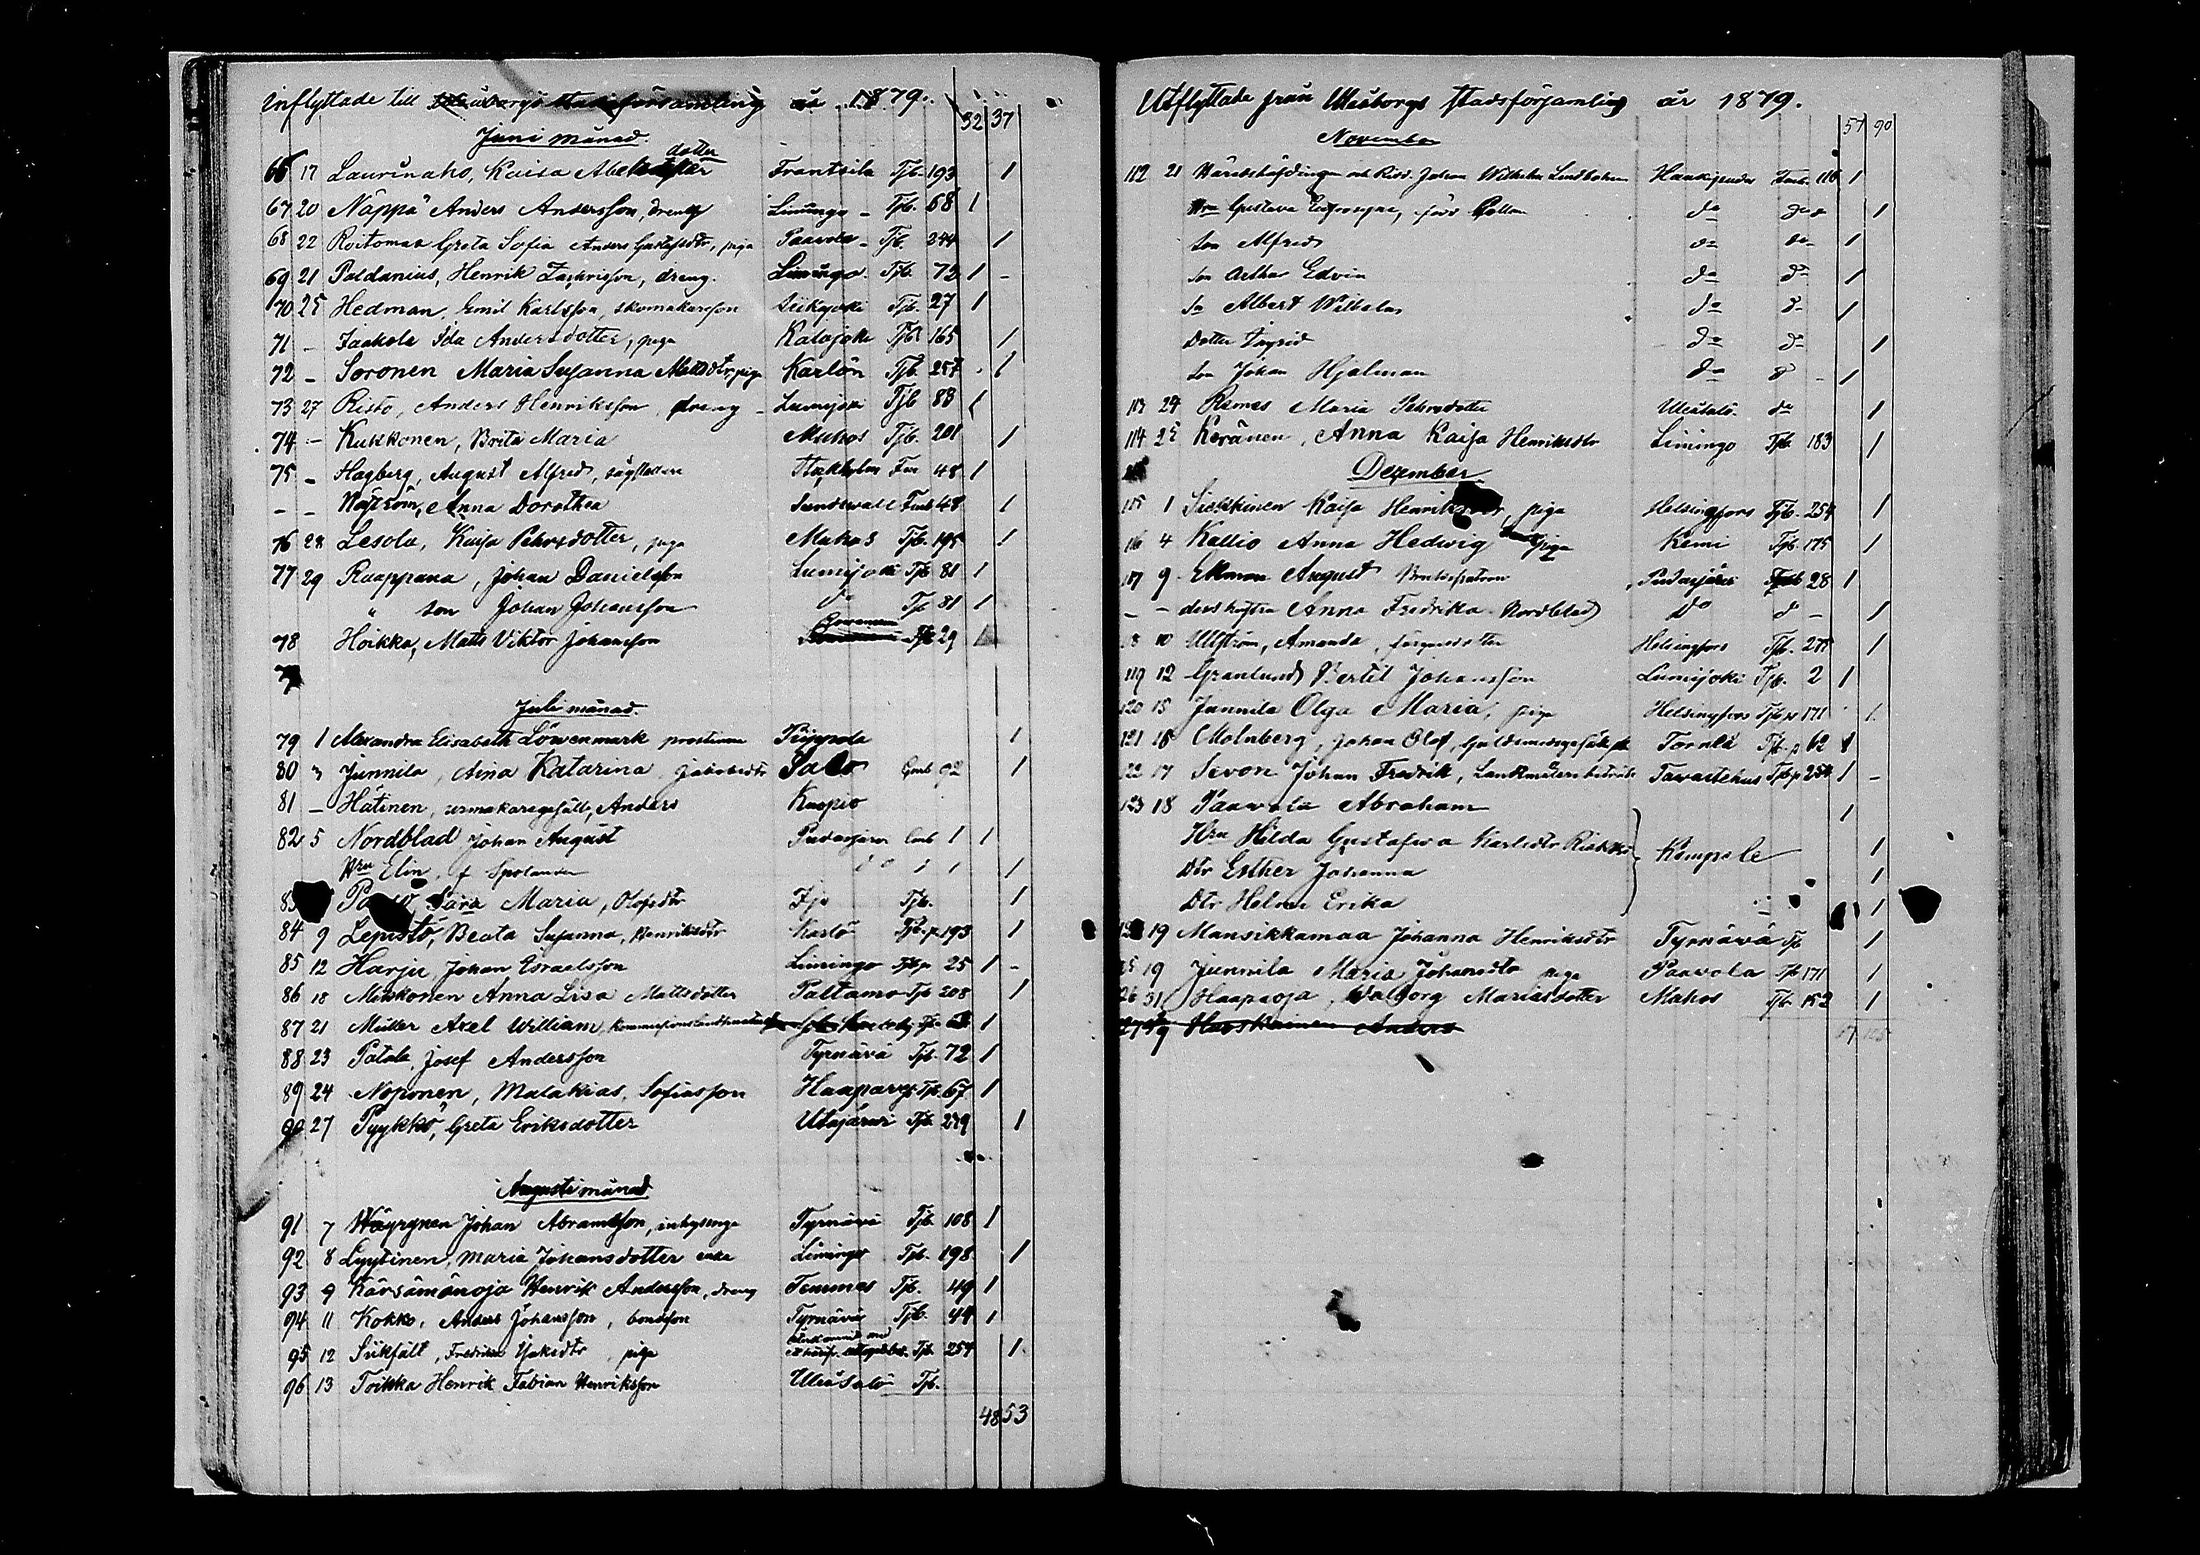 Inflyttade till Uleåborgs stadsförsamling år 1879.
32 37
Juni månad.
dotter
66 17 Laurinaho, Kaisa Abels Frantsila Tjb. 193 1
67 20 Näppä Anders Andersson, dreng Limingo - Tjb. 68 1
68 22 Roitomaa Greta Sofia Anders Gustafsdtr, piga Paavola - Tjb. 244 1
69 21 Paldanius, Henrik Zachrisson, dreng. Limingo. Tjb. 72 1 -
70 25 Hedman, Emil Karlsson, skomakarson Siikajoki Tjb. 27 1
71 - Jaakola Ida Andersdotter, piga Kalajoki Tjb. 165 1
72 - Soronen Maria Susanna Mattsdtr, piga Karlön Tjb. 257 1
73 27 Risto, Anders Henriksson, dreng - Lumijoki Tjb 83 1
74 - Kukkonen, Brita Maria Muhos Tjb. 201 1
75 - Hagberg, August Alfred, Stockholm 48 1
- - Nyström, Anna Dorothea Sundswall 48 1
76 28 Lesola, Kaisa Pehrsdotter, piga Muhos Tjb. 195 1
77 29 Raappana, Johan Danielsson Lumijoki Tjb 81 1
" son Johan Johansson do Tjb 81 1
78 Hoikka, Matts Viktor Johansson Tjb 29 1
Juli månad.
79 1 Alexandra Elisabeth Löwenmark prostinna Piippola 1
80 3 Junnila, Aina Katarina Jakobsdtr Salo 92 1
81 - Hätinen, urmakaregesäll, Anders Kuopio
82 5 Nordblad Johan August Pudasjärvi 1 1
Hru Elin, f Spolander do 1 1
83 Sara Maria, Olofsdtr Ijo Tjb. 1
84 9 Lepistö, Beata Susanna, Henriksdtr Karlö Tjb. p. 193 1
85 12 Harju, Johan Israelsson Limingo Tjb p 25 1 -
86 18 Mikkonen Anna Lisa Mattsdotter Paltamo Tjb 208 1
87 21 Müller Axel William, 1
88 23 Patala, Josef Andersson Tyrnävä Tjb. 72 1
89 24 Noponen, Malakias, Sofiasson Haapavesi Tjb. 67 1
90 27 Pyykkö, Greta Eriksdotter Utajärvi Tjb. 279 1
Augusti månad
91 7 Wäyrynen Johan Abramsson, inhysinge Tyrnävä Tjb. 108 1
92 8 Lyytinen, Maria Johansdotter enka Limingo Tjb. 198 1
93 9 Kärsämänoja Henrik Andersson, dreng Temmes Tjb. 49 1
94 11 Kokko, Anders Johansson, bondson Tyrnävä Tjb. 44 1
95 12 Siikfält, Fredrika piga Tjb. 254 1
96 13 Toikka Henrik Fabian Henriksson Uleåsalo Tjb.
48 53
Utflyttade från Uleåborgs stadsförsamling år 1879.
57 90
November
112 21 Häradshöfdingen och Ridd. Johan Wilhelm Lindholm Haukipudas 116 1
Hru Gustava Eufrosyne, född do do 1
son Alfred do do 1
son Arthur Edvin do do 1
so Albert Wilhelm do do 1
Dotter Ingrid do do 1
son Johan Hjalmar do do - 1
113 24 Remes Maria Pehrsdotter Uleåsalo. do 1
114 25 Keränen, Anna Kaisa Henriksdtr Limingo Tjb. 183 1
December
115 1 Kaisa piga Helsingfors Tjb. 254 1
116 4 Kallio Anna Hedwig piga Kemi Tjb. 175 1
117 9 Ekman August Bruksspatron Pudasjärvi 28 1
- - dess hustru Anna Fredrika Nordblad do do - 1
118 10 Ullström, Amanda, Helsingfors Tjb. 275 1
119 12 Granlund Bertil Johansson Lumijoki Tjb. 2 1
120 15 Junnila Olga Maria, piga Helsingfors Tjb p 171 1
121 16 Molnberg, Johan Olof, Torneå Tjb. p 62 1
122 17 Sevon Johan Fredrik, Tavastehus Tjb p 254 1 -
123 18 Paavola Abraham 1
Hru Hilda Gustafwa Karlsdtr Kempele 1
Dtr Esther Johanna 1
Dtr Helmi Erika 1
19 Mansikkamaa Johanna Henriksdtr Tyrnävä Tjb 1
125 19 Junnila Maria Johansdtr piga Paavola Tjb 171 1
126 31 Haapaoja, Walborg Mariasdotter Muhos Tjb. 152 1
127 Anders
57 105